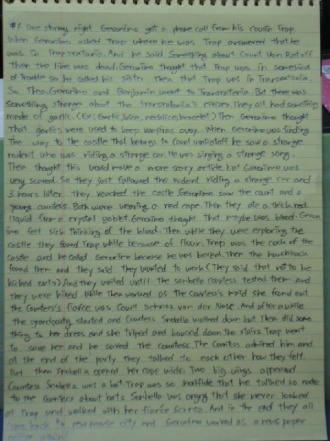 #1. One stormy night Geronimo got a phone call from his cousin Trap.
When Geronimo asked Trap where he was Trap answered that he
was in Transratania. And he said something about Count Von
Then the line was dead. Geronimo thought that Trap was in some kind
of trouble so he called his sister Then that Trap was in Transratania.
So Thea, Geronimo and Benjamin went to Transratania. But there was
something strange about the transratania's they all had something
made of garlic. (Ex: Garlic, bracelet) Then Geronimo thought
that garlics were used to keep vampires away. When Geronimo was finding
the way to the castle that belongs to Count he saw a strange
rodent who was riding a strange car. He was singing a strange song.
Thea thought this would make a more scary article but Geronimo was
very scared. So they just followed the rodent riding a strange car and
3 hours later They reached the castle Geronimo saw the count and a
young countess. Both were wearing a red cape. Then they a thick red
liquid from a crystal goblet. Geronimo thought that maybe was blood.
felt sick thinking of the blood. Then while they were exploring the
castle they found Trap white because of flour. Trap was the cook of the
castle and he called Geronimo because he was bored. Then the hunchback
found them and they said they wanted to work (They said that not to be
kicked out) And they waited until the Countess tested them and
they were hired. While Thea worked as the Countess's maid she found out
the Countess's fiance was Count And after a while
the started and Countess walked down but Then did some
thing to her dress and she triped and bounced down the stairs. Trap went
to save her and he saved the Countess. The Countess admired him and
at the end of the party they talked to each other how they felt.
But then opened her cape wide. Two big wings appeared
Countess was a bat. Trap was so that he talked so rude
to the Countess about bats. was angry. And she never looked
at Trap and walked with her fiance And in the end they all
came back to new mouse city and Geronimo worked as a news paper